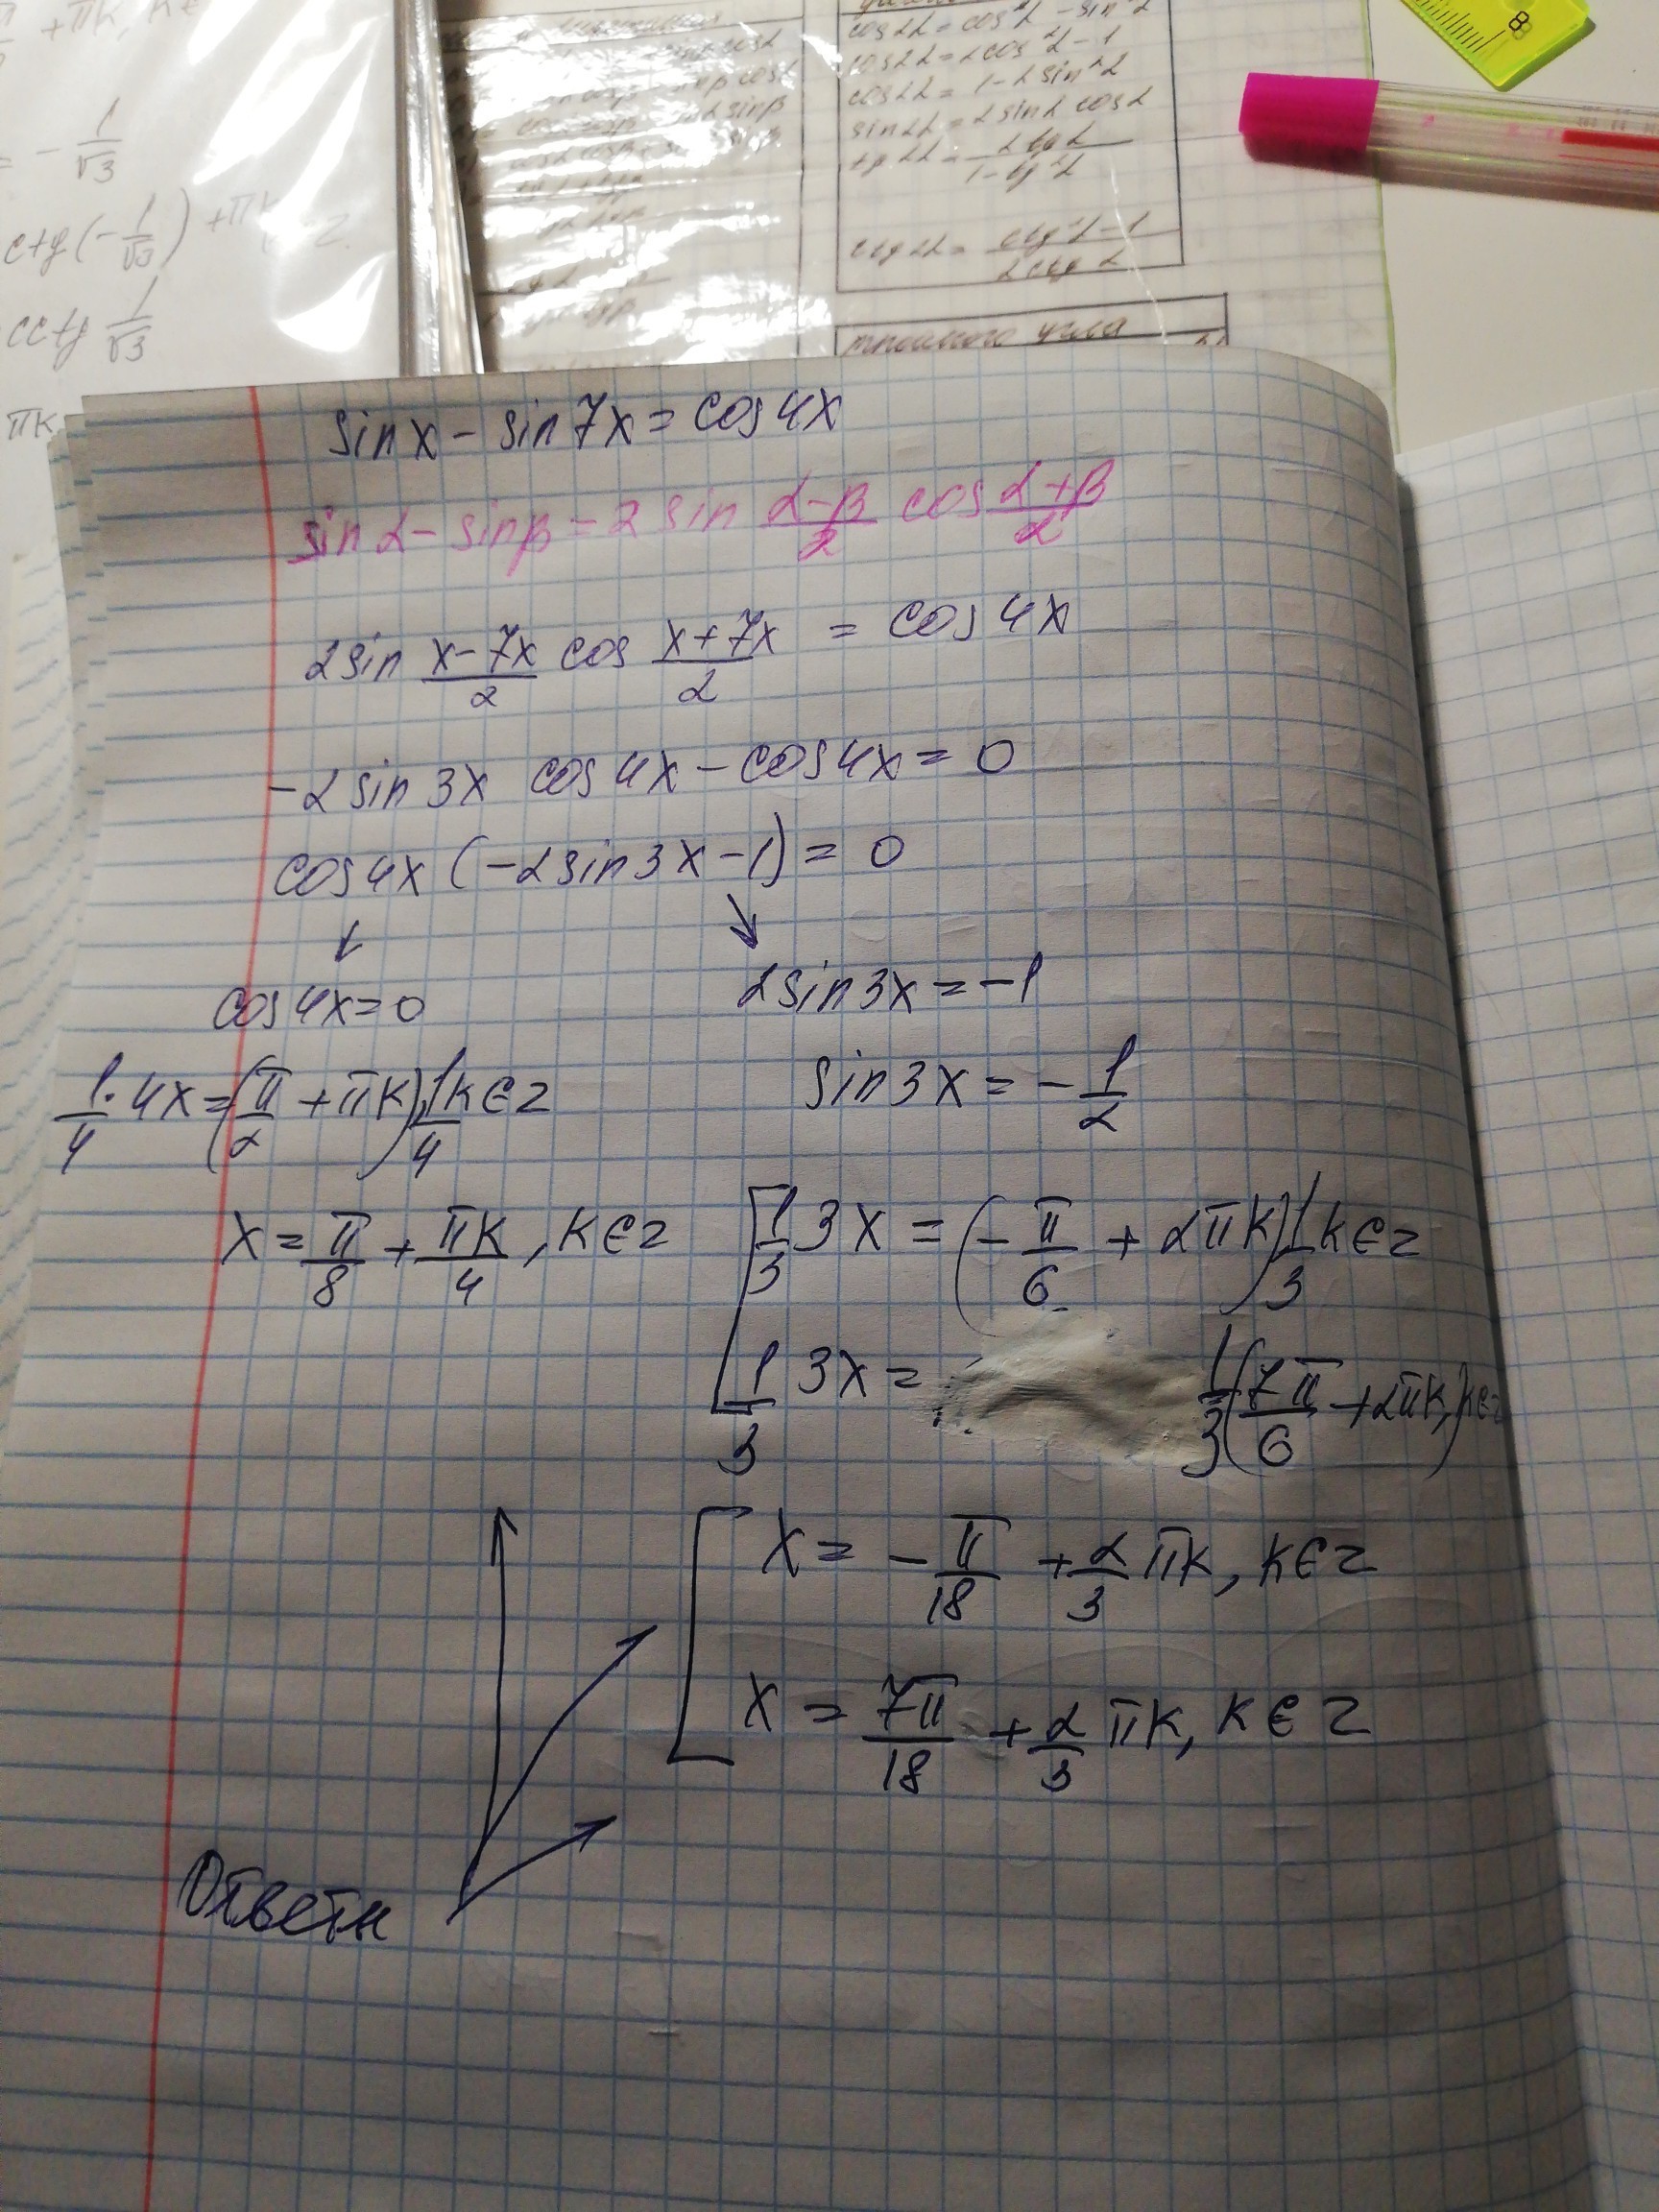 +πk, k∈
= - 1/√3
ctg(-1/√3) + πk
cctg 1/√3
πk
cos2α = cos²α - sin²α
cos2α = 2cos²α - 1
cos2α = 1 - 2sin²α
sin2α = 2sinα cosα
tg2α = 2tgα / 1-tg²α
ctg2α = ctg²α-1 / 2ctgα
тройного угла
sinx - sin7x = cos4x
sinα - sinβ = 2 sin α-β/2 cos α+β/2
2sin x-7x/2 cos x+7x/2 = cos4x
-2sin3x cos4x - cos4x = 0
cos4x (-2sin3x - 1) = 0
↓ ↘
cos4x = 0 2sin3x = -1
1/4 · 4x = (π/2 + πk) · 1/4 k∈z sin3x = - 1/2
x = π/8 + πk/4, k∈z [ 1/3 3x = (-π/6 + 2πk) 1/3 k∈z
1/3 3x = 1/3 (7π/6 + 2πk), k∈z
[ x = - π/18 + 2/3 πk, k∈z
x = 7π/18 + 2/3 πk, k∈z
Ответы